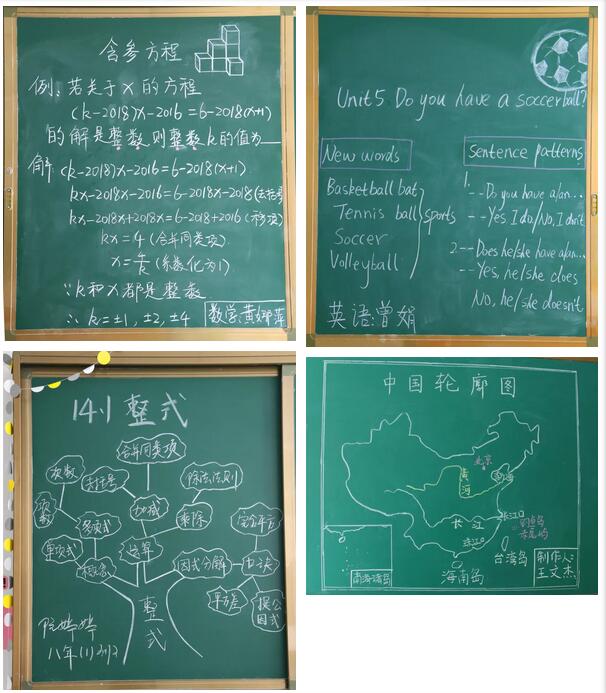 含参方程
例:若关于x的方程
(k-2018)x-2016=6-2018(x+1)
的解是整数,则整数k的值为___
解:(k-2018)x-2016=6-2018(x+1)
kx-2018x-2016=6-2018x-2018(去括号)
kx-2018x+2018x=6-2018+2016(移项)
kx=4(合并同类项)
x=4/k(系数化为1)
∵k和x都是整数
∴k=±1,±2,±4
数学:黄娜萍
Unit5 Do you have a soccerball?
New words
Basketball bat
Tennis ball
Soccer
Volleyball
sports
Sentence patterns
1
--Do you have a/an...
--Yes, I do/No, I don't
2--Does he/she have a/an...
--Yes, he/she does
No, he/she doesn't
英语:曾娟
14.1整式
合并同类项
次数
去括号
除法法则
加减
乘除
完全平方
多项式
单项式
运算
因式分解
概念
平方差
提公因式
整式
八年(1)
中国轮廓图
北京
渤海
黄河
长江
长江口
珠江口
钓鱼岛
赤尾屿
台湾岛
海南岛
南海诸岛
制作人:
王文杰